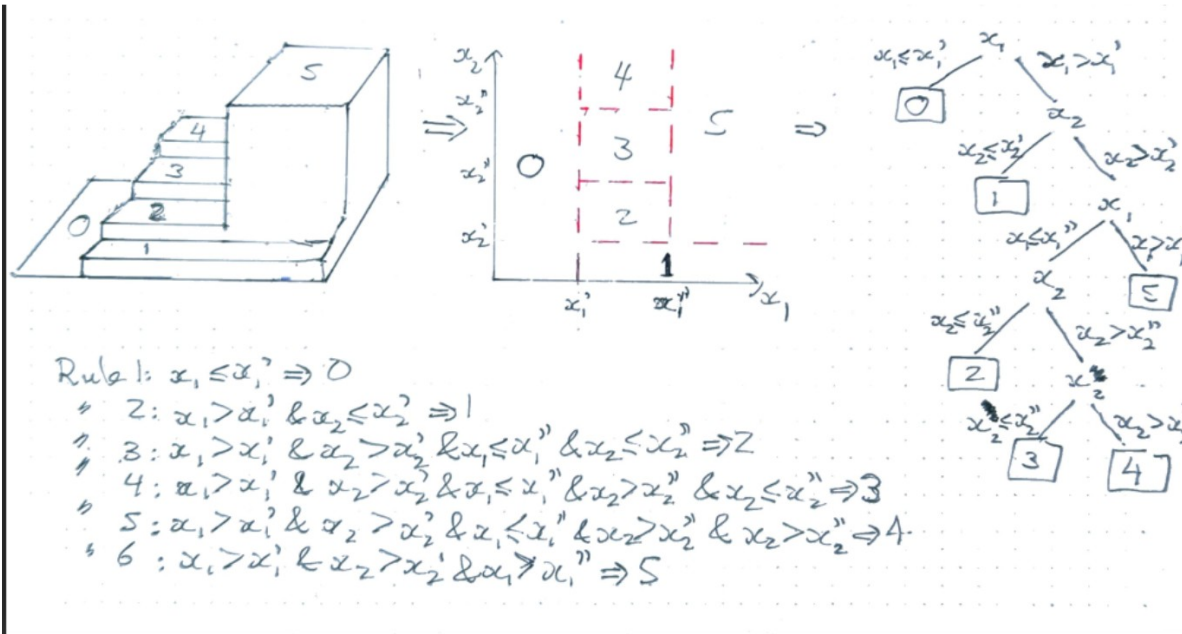 5
4
3
2
1
0
⇒
x₂
x₂'''
x₂''
x₂'
0
4
3
2
1
5
x₁'
x₁''
x₁
⇒
x₁
x₁≤x₁'
x₁>x₁'
0
x₂
x₂≤x₂'
x₂>x₂'
1
x₁
x₁≤x₁''
x₁>x₁
5
x₂
x₂≤x₂''
x₂>x₂''
2
x₂
x₂≤x₂'''
x₂>x₂
3
4
Rule 1: x₁≤x₁' ⇒ 0
" 2: x₁>x₁' & x₂≤x₂' ⇒ 1
" 3: x₁>x₁' & x₂>x₂' & x₁≤x₁'' & x₂≤x₂'' ⇒ 2
" 4: x₁>x₁' & x₂>x₂' & x₁≤x₁'' & x₂>x₂'' & x₂≤x₂''' ⇒ 3
" 5: x₁>x₁' & x₂>x₂' & x₁≤x₁'' & x₂>x₂'' & x₂>x₂''' ⇒ 4
" 6: x₁>x₁' & x₂>x₂' & x₁>x₁'' ⇒ 5